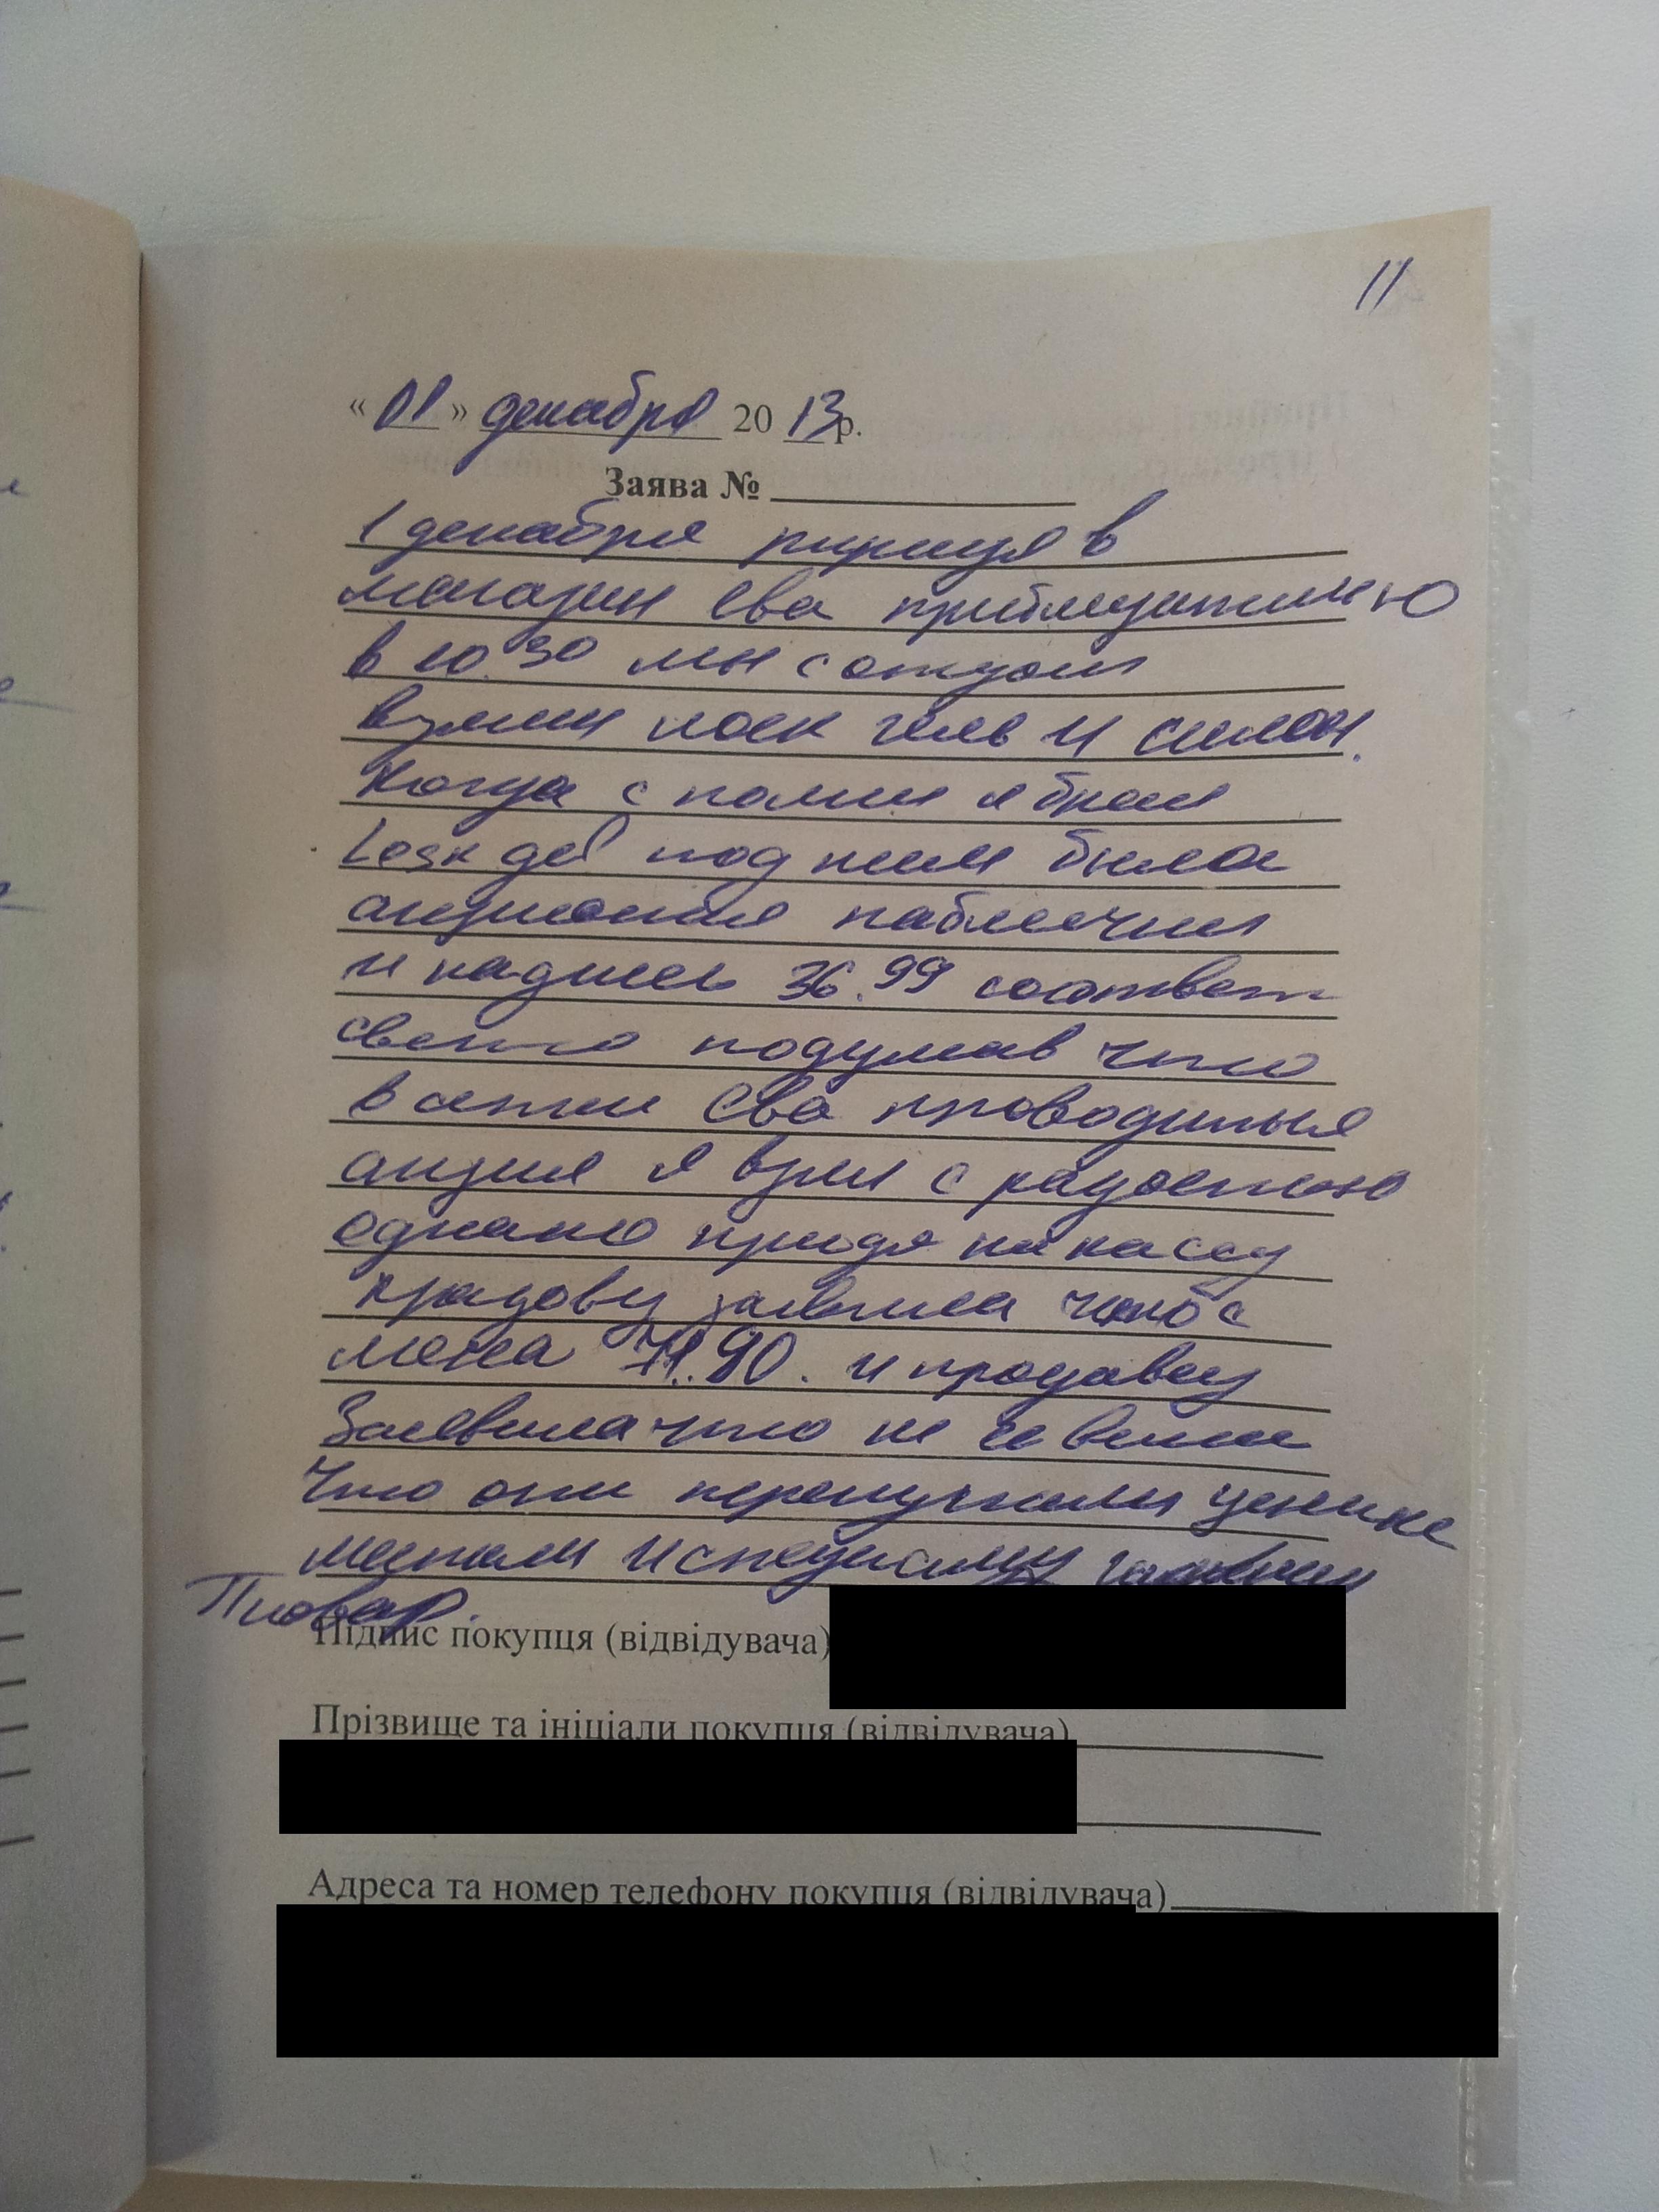 11
« 01 » декабря 20 13р.
Заява № 
1 декабря в
магазин Ева приблизительно
в 10.30 мы с отцом
взяли лоск гель и
Когда с полки я брал
Losk gel под ним была
акционная табличка
и надпись 36.99 соответ
свенно подумав что
в сети Ева проводиться
акция я взял с радостью
однако придя на кассу
заявила чтоб с
меня 71.90. и продавец
Заявила что не и
что они перепутали ценник
местами и товар.
Підпис покупця (відвідувача)
Прізвище та ініціали покупця (відвідувача)
Адреса та номер телефону покупця (відвідувача)